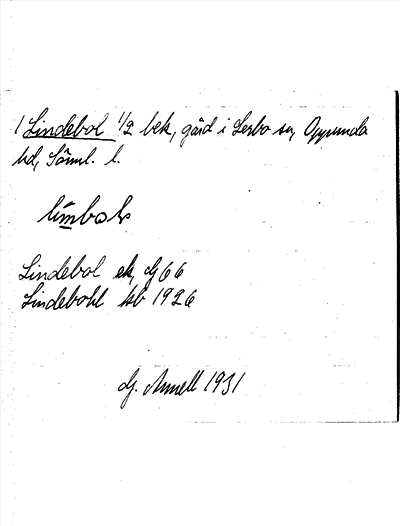 1 Lindebol 1/2 bek, gård i Lerbo sn, Oppunda
hd, Söml. l.
Lindebol ek, dj 66
Lindebohl kb 1926
dj. Annell 1931